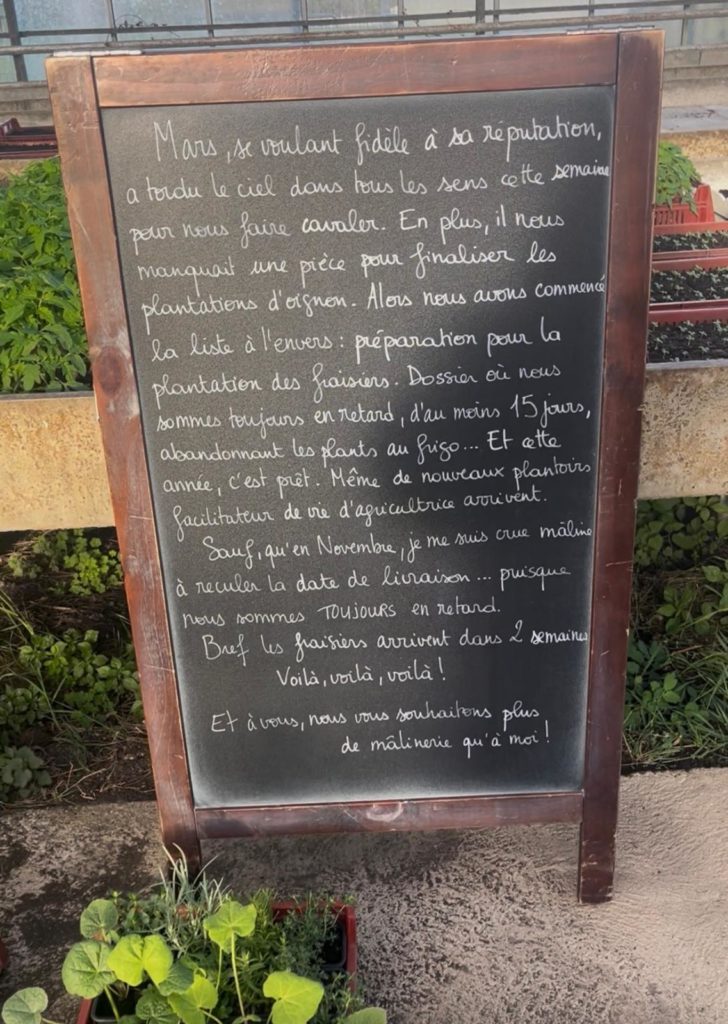 Mars, se voulant fidèle à sa réputation,
a tordu le ciel dans tous les sens cette semaine
pour nous faire cavaler. En plus, il nous
manquait une pièce pour finaliser les
plantations d'oignon. Alors nous avons commencé
la liste à l'envers : préparation pour la
plantation des fraisiers. Dossier où nous
sommes toujours en retard, d'au moins 15 jours,
abandonnant les plants au frigo... Et cette
année, c'est prêt. Même de nouveaux plantoirs
facilitateur de vie d'agricultrice arrivent.
Sauf, qu'en Novembre, je me suis crue mâline
à reculer la date de livraison... puisque
nous sommes TOUJOURS en retard.
Bref les fraisiers arrivent dans 2 semaines
Voilà, voilà, voilà !
Et à vous, nous vous souhaitons plus
de mâlinerie qu'à moi !